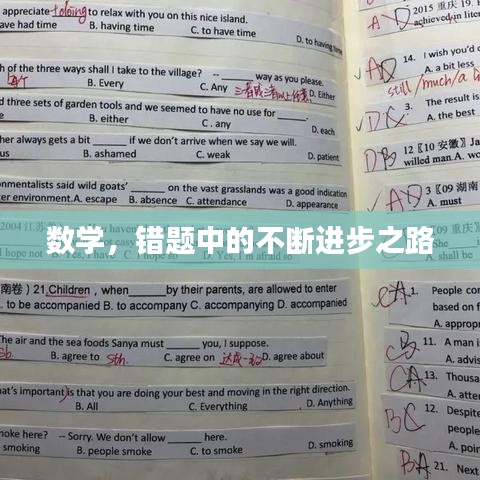 appreciate +doing to relax with you on this nice island.
ave had time B. having time C. to have time D. to having time
h of the three ways shall I take to the village? -- ______ way as you please.
每个 B. Every C. Any 三者或三者以上任意 D. Either
d three sets of garden tools and we seemed to have no use for ______.
B. either C. any D. each
her always gets a bit ______ if we don't arrive when we say we will.
us B. ashamed C. weak D. patient
nmentalists said wild goats' ______ on the vast grasslands was a good indication
er environment.A. escape B. absence C. attendance D. appearance
2004 江苏
I hope not
数学，错题中的不断进步之路
南卷) 21.Children , when______by their parents, are allowed to enter
. to be accompanied B. to accompany C. accompanying D. accompanied
The air and the sea foods Sanya must ______ you, I suppose.
sb. B. agree to sth. C. agree on 达成一致 D. agree about
hat's important) is that you are doing your best and moving in the right direction.
B. All C. Everything D. Anything
moke here? -- Sorry. We don't allow ______ here.
smoking B. people smoke C. to smoke D. smoking
A 2015 重庆 19.
achieved in liter
AD 14. I wish you'd
A. a bit less
still / much/a
DC 3. The result is
A. the best
DB 12 〖10 安徽〗Ja
willed man.A. wo
AD 3 〖09 湖南
A. must
〖09 重庆
A. shall be
CA 1. People con
based on f
A. approp
B 11. A man i
A. advis
CA 13. Thousa
A. atter
BC 12. Despite
people
A. poin
BC 21. Next